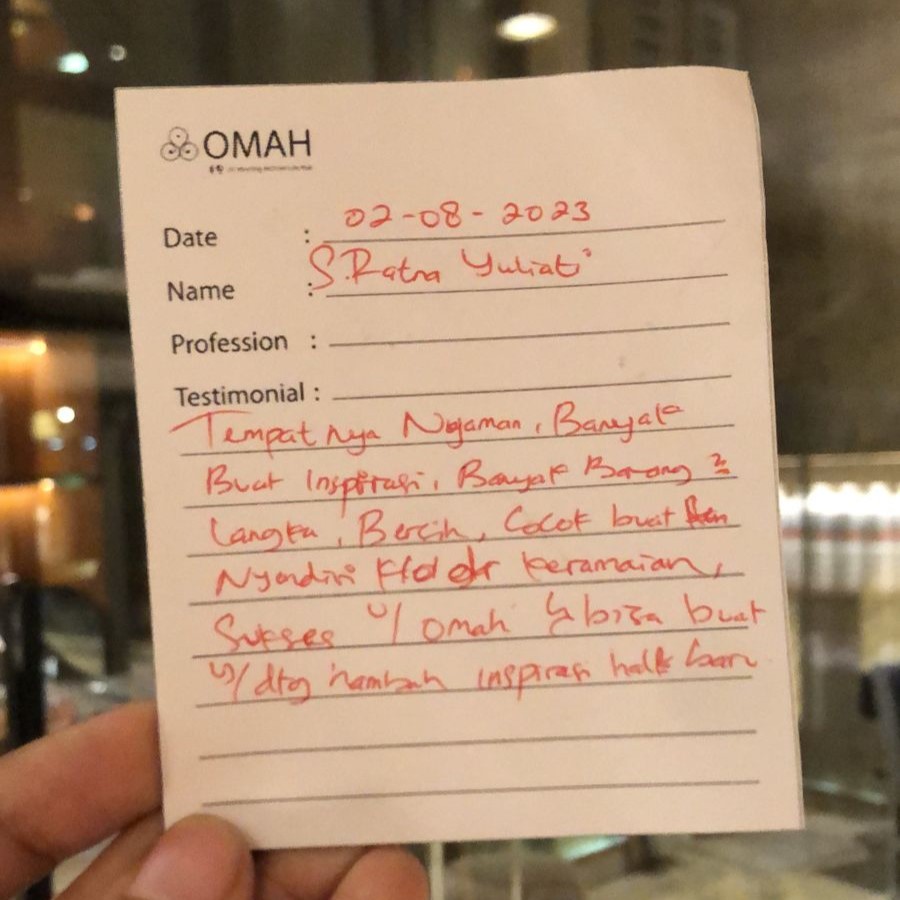 OMAH
Date : 02-08-2023
Name : S.Ratna Yuliati
Profession :
Testimonial :
Tempat nya Nyaman, Banyak
Buat Inspirasi, Banyak Barang 2
Langka, Bersih, Cocok buat
Nyendiri keramaian,
Sukses u/ omah bisa buat
u/ dtg nambah inspirasi baru